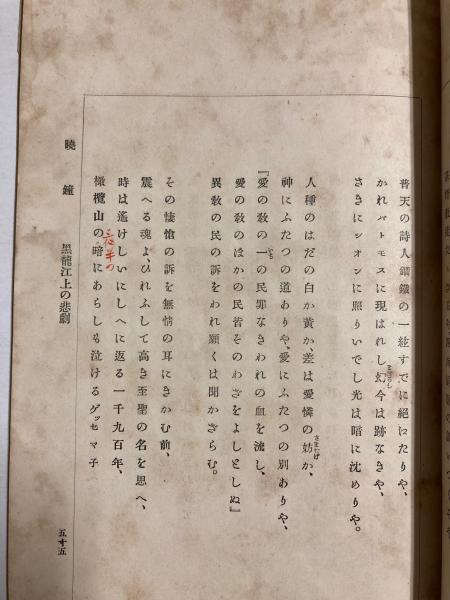 普天の詩人鋼鐵の一絃すでに絕にたりや、
かれパトモスに現はれし幻今は跡なきや、
さきにシオンに照りいでし光は暗に沈めりや。
人種のはだの白か黃か、差は愛憐の妨か、
さまたげ
神にふたつの道ありや、愛にふたつの別ありや、
『愛の敎の一の民罪なきわれの血を流し、
愛の敎のほかの民皆そのわざをよしとしぬ』
異敎の民の訴をわれ願くは聞かざらむ。
その悽愴の訴を無情の耳にきかむ前、
震へる魂よ、ひれふして高き至聖の名を思へ、
時は遙けしいにしへに返る一千九百年、
橄欖山の暗にあらしも泣けるゲッセマ子
夜半の
曉鐘 黑龍江上の悲劇
五十五